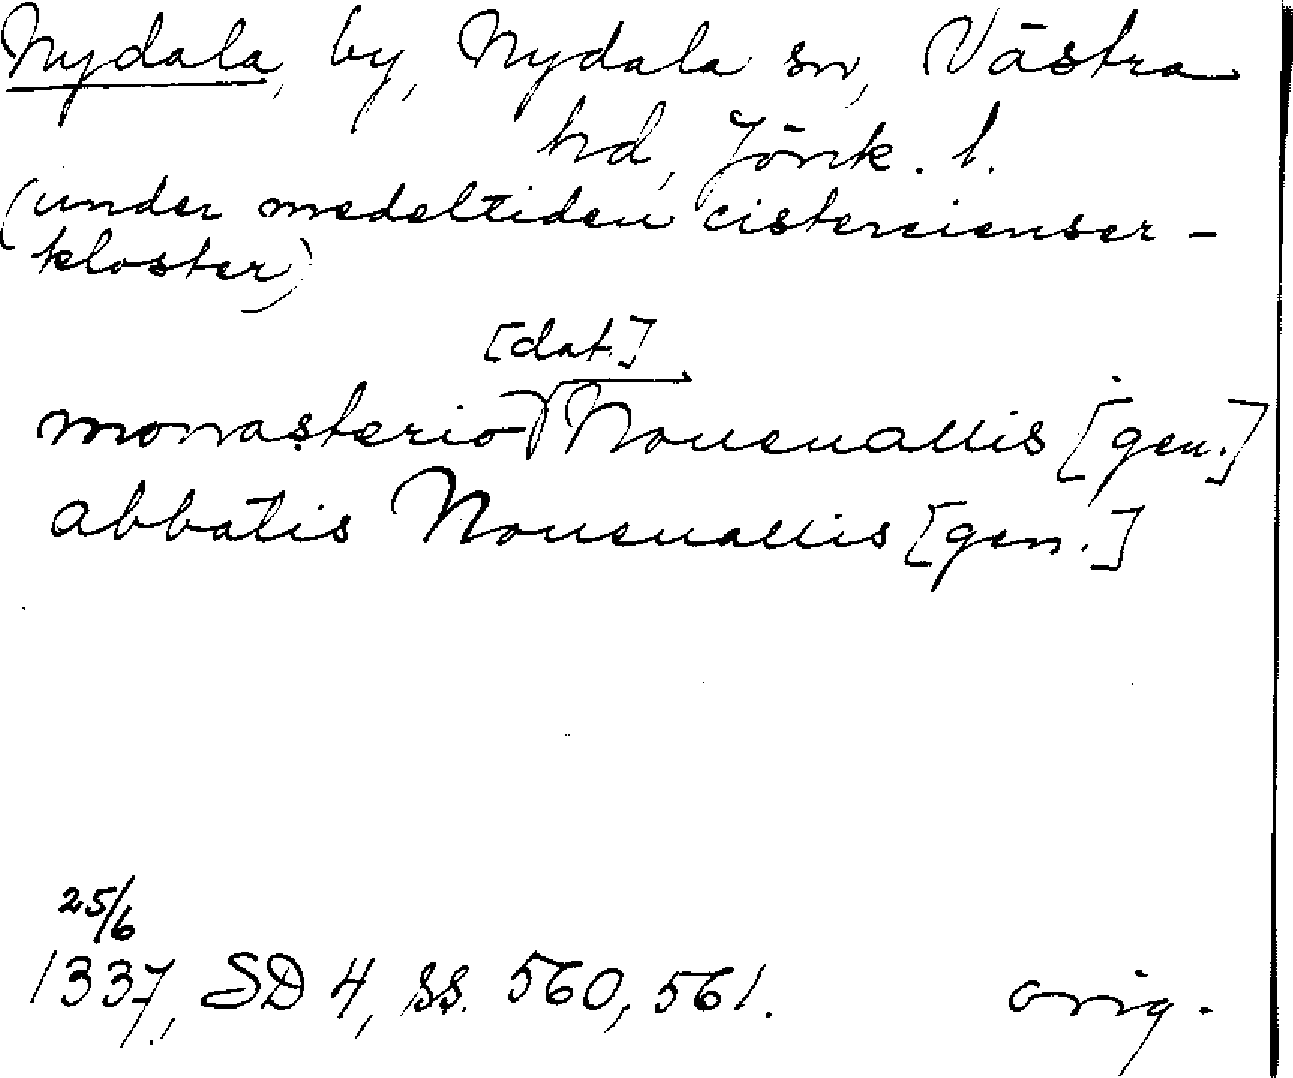 Nydala, by, Nydala sn, Västra
hd, Jönk. l.
(under medeltiden cistercienser-
kloster)
[dat.]
monasterio Noueuallis [gen.]
abbatis Noueuallis [gen.]
25/6
1337, SD 4, ss. 560, 561. orig.